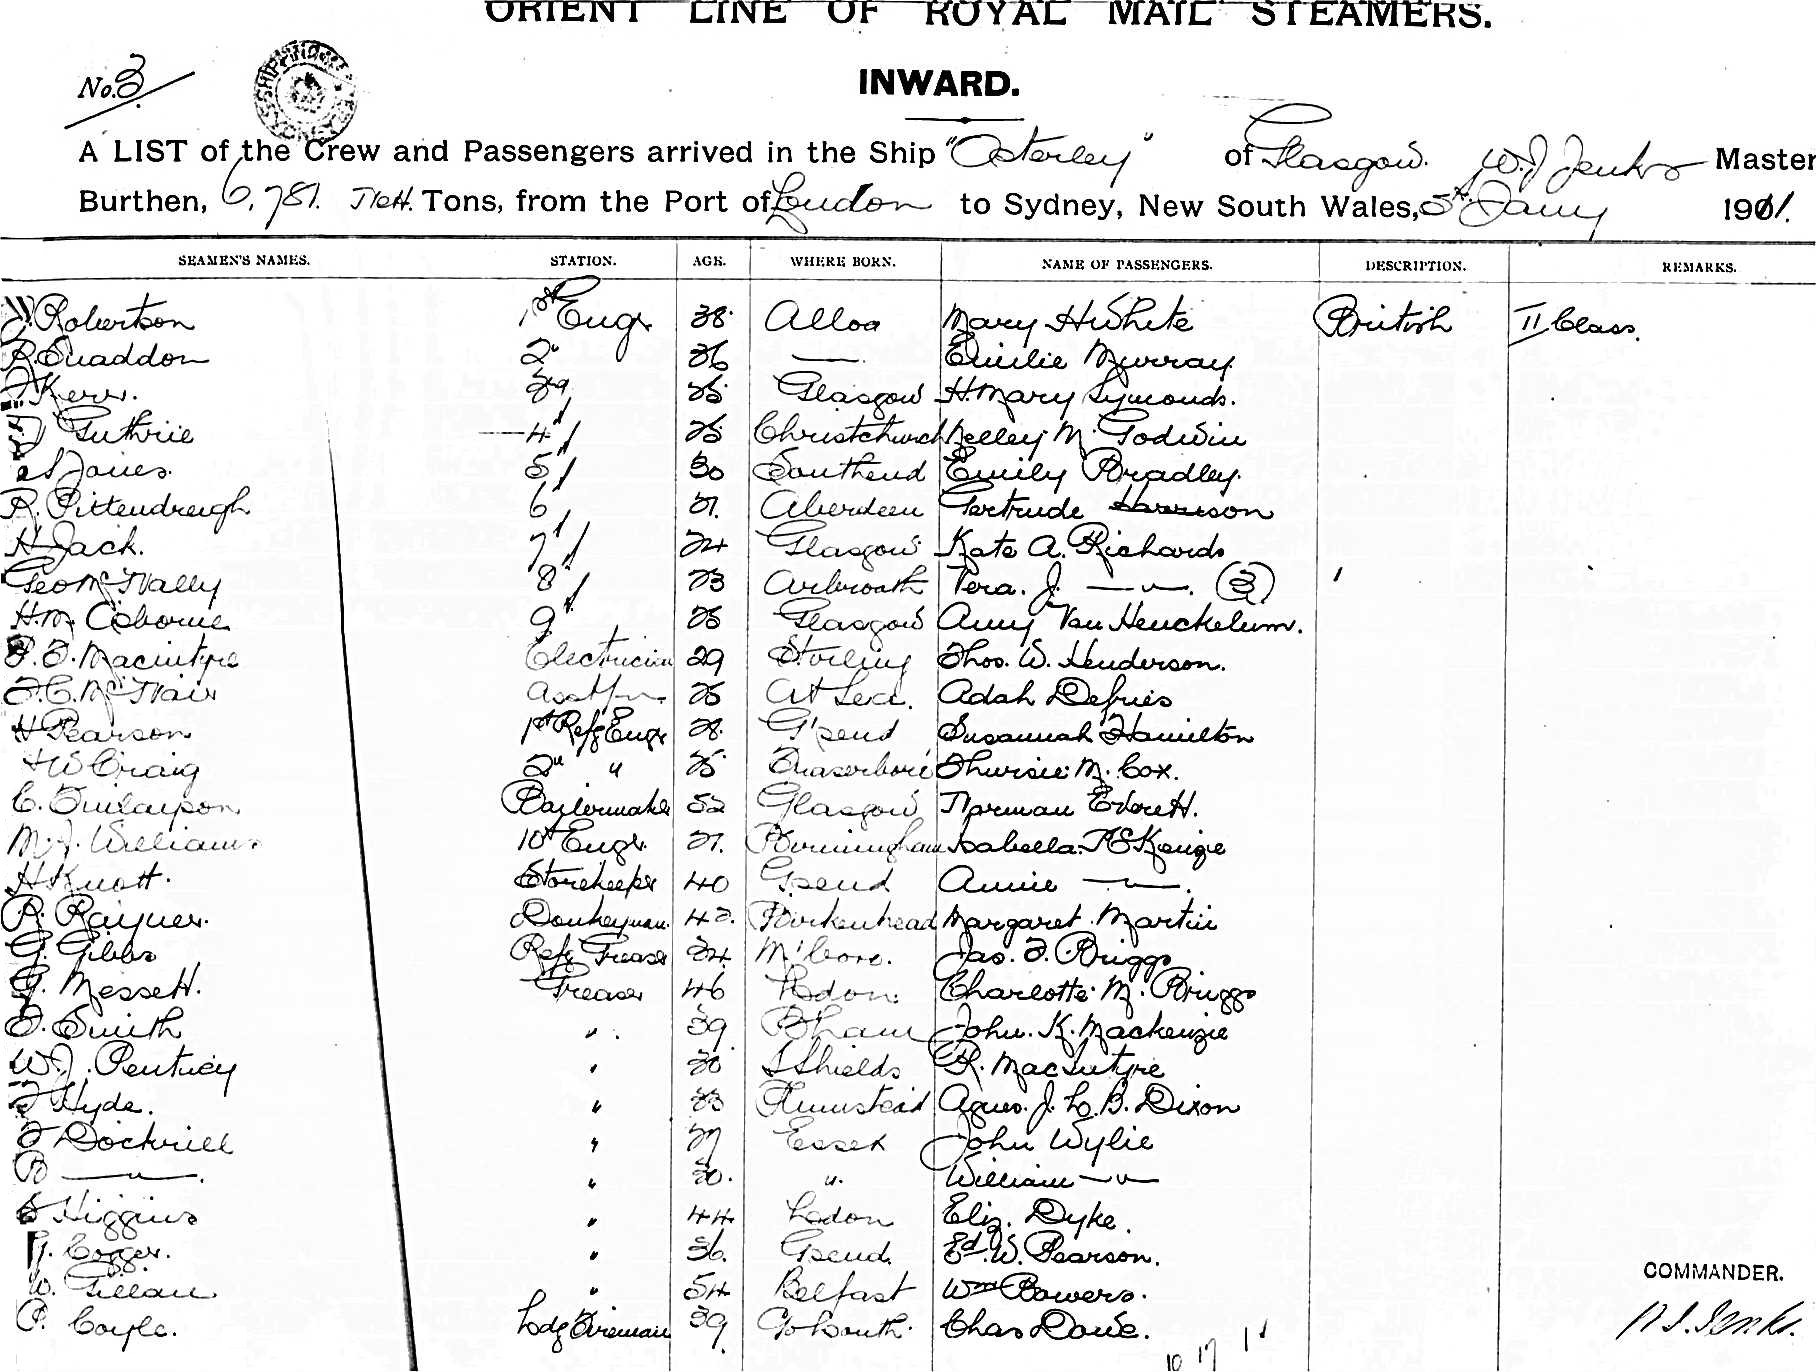 ORIENT LINE OF ROYAL MAIL STEAMERS.
No. 3
INWARD.
A LIST of the Crew and Passengers arrived in the Ship "Osterley" of Glasgow. W. J. Jenks Master
Burthen, 6,781. Nett. Tons, from the Port of London to Sydney, New South Wales, 5th Jany 1911.
SEAMEN'S NAMES. STATION. AGE. WHERE BORN. NAME OF PASSENGERS. DESCRIPTION. REMARKS.
J. Robertson 1st Engr 38. Alloa Mary H White British II Class.
R. Snaddon 2" 36 —. Emilie Murray
J Kerr. Glasgow H. Mary Symonds.
J Guthrie 4" Christchurch Nelley M. Godwin
S Jones. 5" 30 Southend Emily Bradley.
R. Pittendreigh 6 Aberdeen Gertrude Harrison
H Jack. 7" 24 Glasgow Kate A. Richards
Geo McNally 8" 23 Arbroath Vera. J. —"—. (3)
H. M. Osborne 9" Glasgow Amy Van Henckelum.
Macintyre Electrician 29 Stirling Thos. W. Henderson.
McNair Asst At Sea. Adah Defries
H Pearson 1st Refg Engr 28. G'send Susannah Hamilton
H W Craig 2" " Thursie M. Cox.
C. Finlayson Boilermaker 52 Glasgow Norman Everett.
M. J. Williams 10th Engr. Birmingham Isabella McKenzie
H Knott. Storekeeper 40 G'send Annie —"—.
R. Rayner. Donkeyman. 42. Birkenhead Margaret Martin
G. Gibbs Refg Greaser 24. Jas. F. Briggs
G. Messett. Greaser 46 London Charlotte M. Briggs
F. Smith " . 39 B'ham John. K. Mackenzie
W. J. Pentney " 30 S Shields R. MacIntyre
Hyde. " 33 Plumstead Agnes. J. L. B. Dixon
Dockrill " 37 Essex John Wylie
B —"—. " 30. " William —"—
Higgins " 44. London Eliz. Dyke.
Cogger. " 36. G'send. Ed. W. Pearson.
W. Gillan " 54 Belfast Wm Bowers.
P. Coyle. Ldg Fireman 39. Chas Dowe.
COMMANDER.
10 17 1